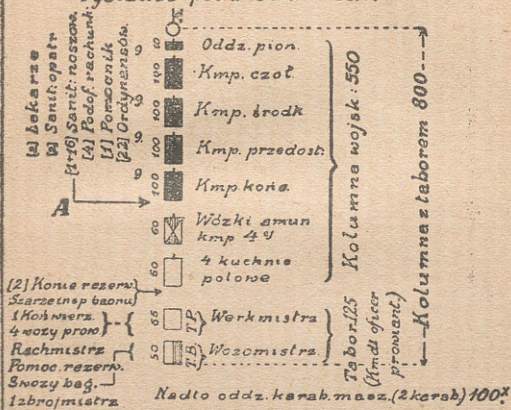 [2] Lekarze
[2] Sanit: opatr
[1+16] Sanit: noszow.
[4] Podof. rachunk
[1] Pomocnik
[22] Ordynansów.
A
10 Oddz. pion.
9
100 Kmp. czoł.
9
100 Kmp. środk
9
100 Kmp. przedost:
9
100 Kmp. końc.
60 Wózki amun
kmp 4ej
60 4 kuchnie
polowe
[2] Konie rezerw
Szarże (nsp baonu)
1 Koń wierz.
4 wozy prow.
65 T.P. Werkmistrz
Rachmistrz
Pomoc. rezerw.
5 wozy bag.
1 zbrojmistrz
50 T.B. Wozomistrz
Kolumna wojsk: 550
Tabor: 125
(Kmdt oficer
prowiant.)
Kolumna z taborem 800
Nadto oddz. karab. masz. (2 karab) 100x